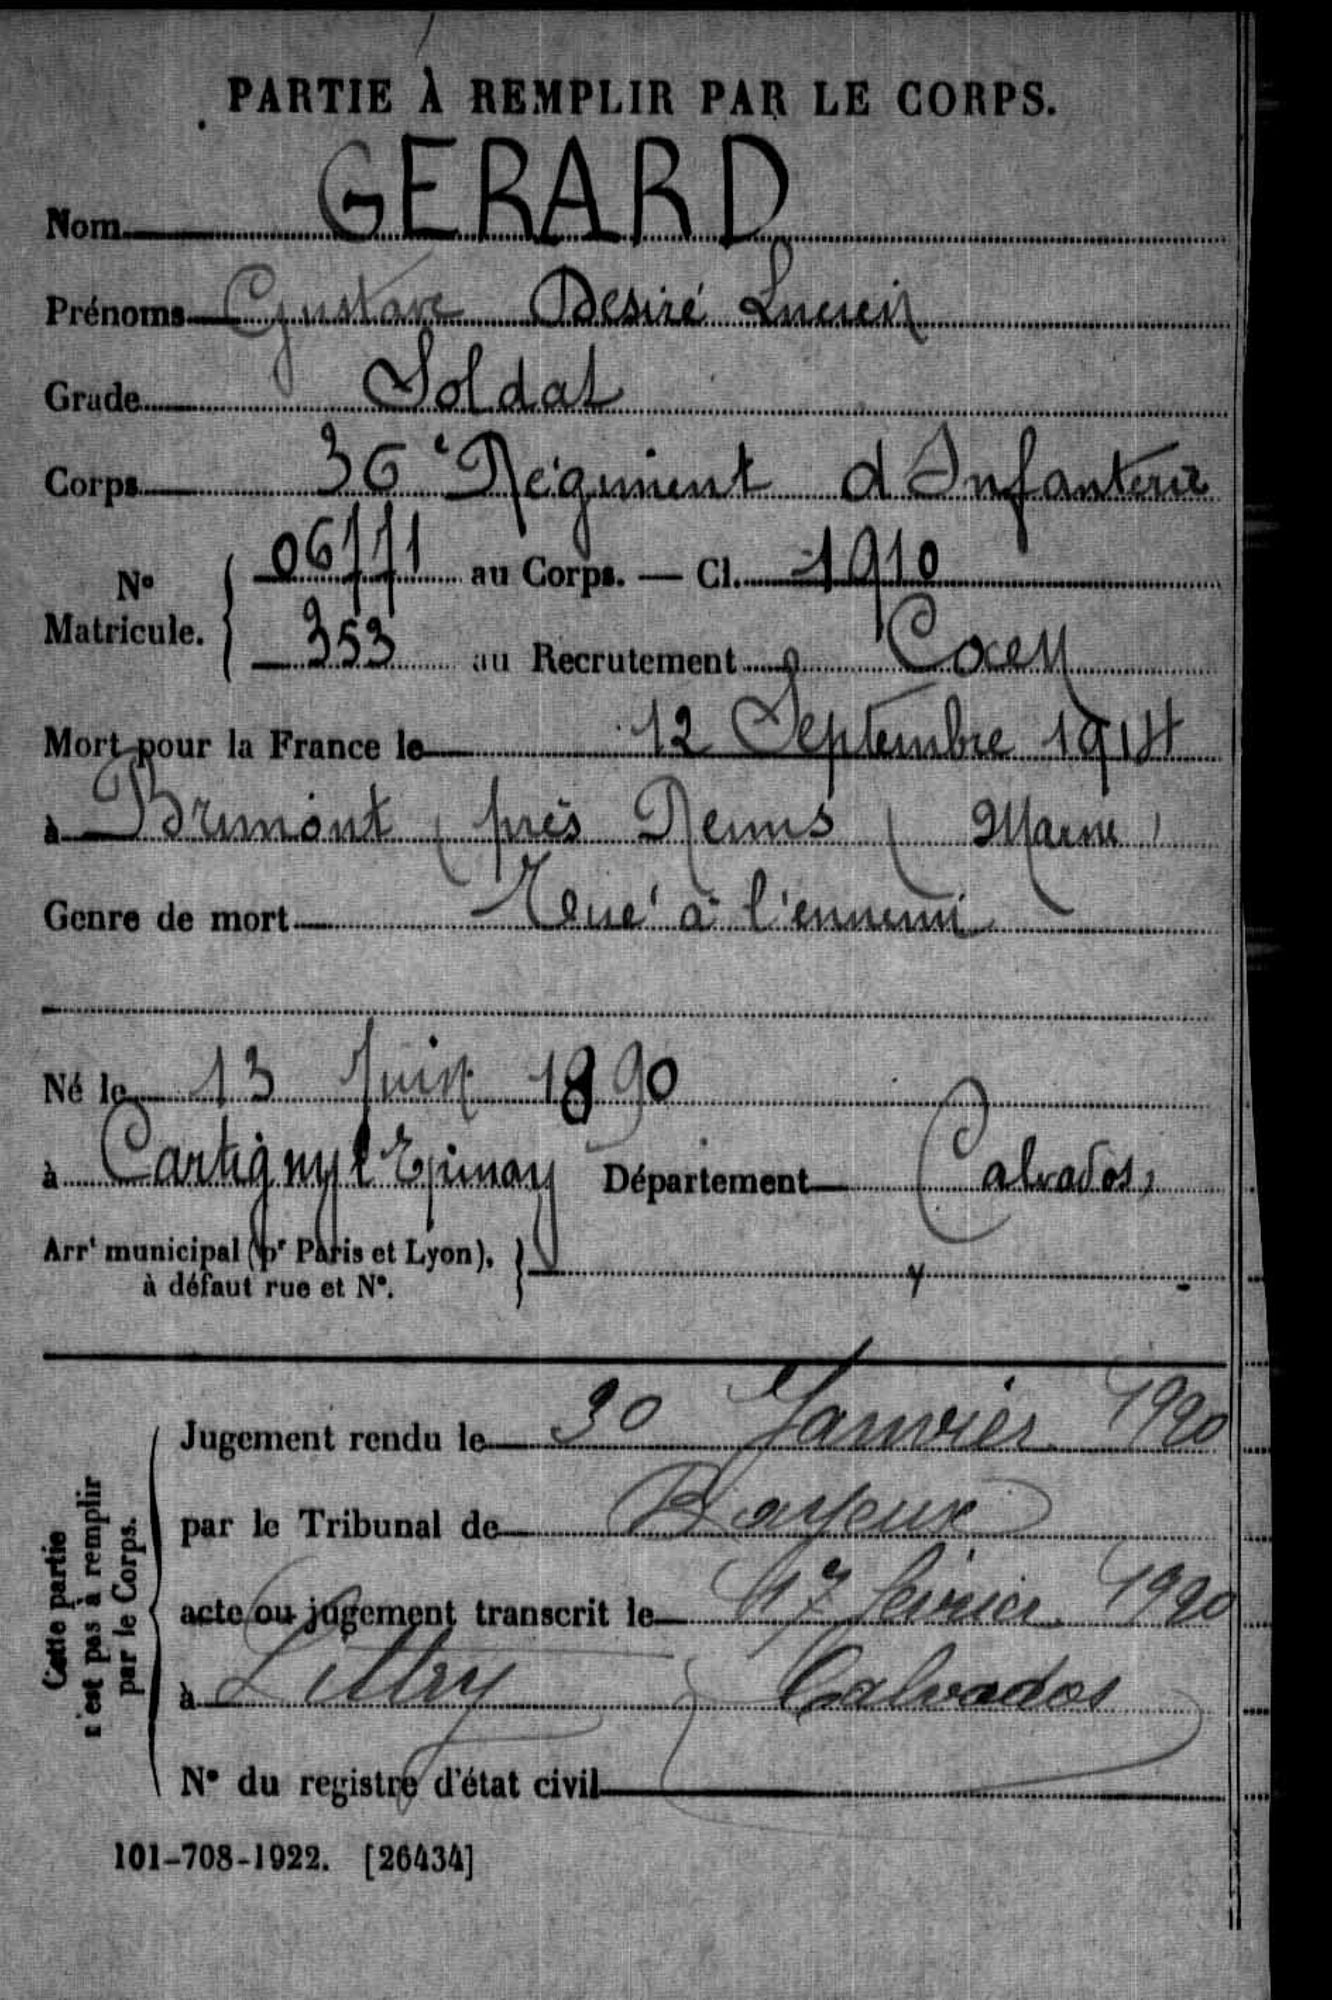 PARTIE À REMPLIR PAR LE CORPS.
Nom GERARD
Prénoms Gustave Desiré Lucien
Grade Soldat
Corps 36e Régiment d'Infanterie
No Matricule. { 06771 au Corps. — Cl. 1910
353 au Recrutement Caen
Mort pour la France le 12 Septembre 1914
à Brimont (près Reims (Marne)
Genre de mort Tué à l'ennemi
Né le 13 Juin 1890
à Cartigny l'Epinay Département Calvados,
Arrt municipal (pr Paris et Lyon), }
à défaut rue et No.
Cette partie
n'est pas à remplir
par le Corps.
Jugement rendu le 30 Janvier 1920
par le Tribunal de Bayeux
acte ou jugement transcrit le 17 février 1920
à Littry (Calvados)
No du registre d'état civil
101-708-1922. [26434]